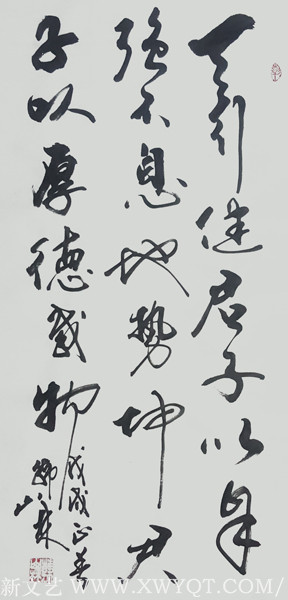 天行健君子以自
强不息地勢坤君
子以厚德載物
戊戌
新文艺 WWW.XWYQT.COM/